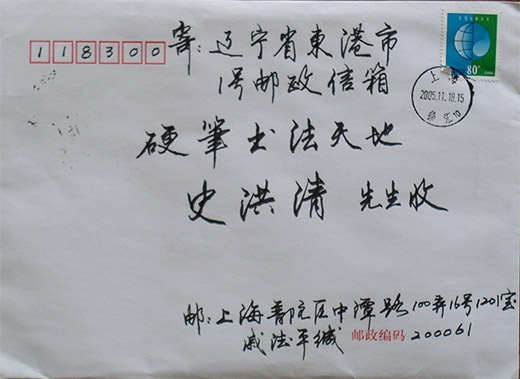 118300
寄:辽宁省東港市
1号邮政信箱
硬筆书法天地
史洪清 先生收
80分
上海
2005.11.18.15
邮:上海普陀区中潭路100弄16号1201室
戚法平缄
邮政编码 200061